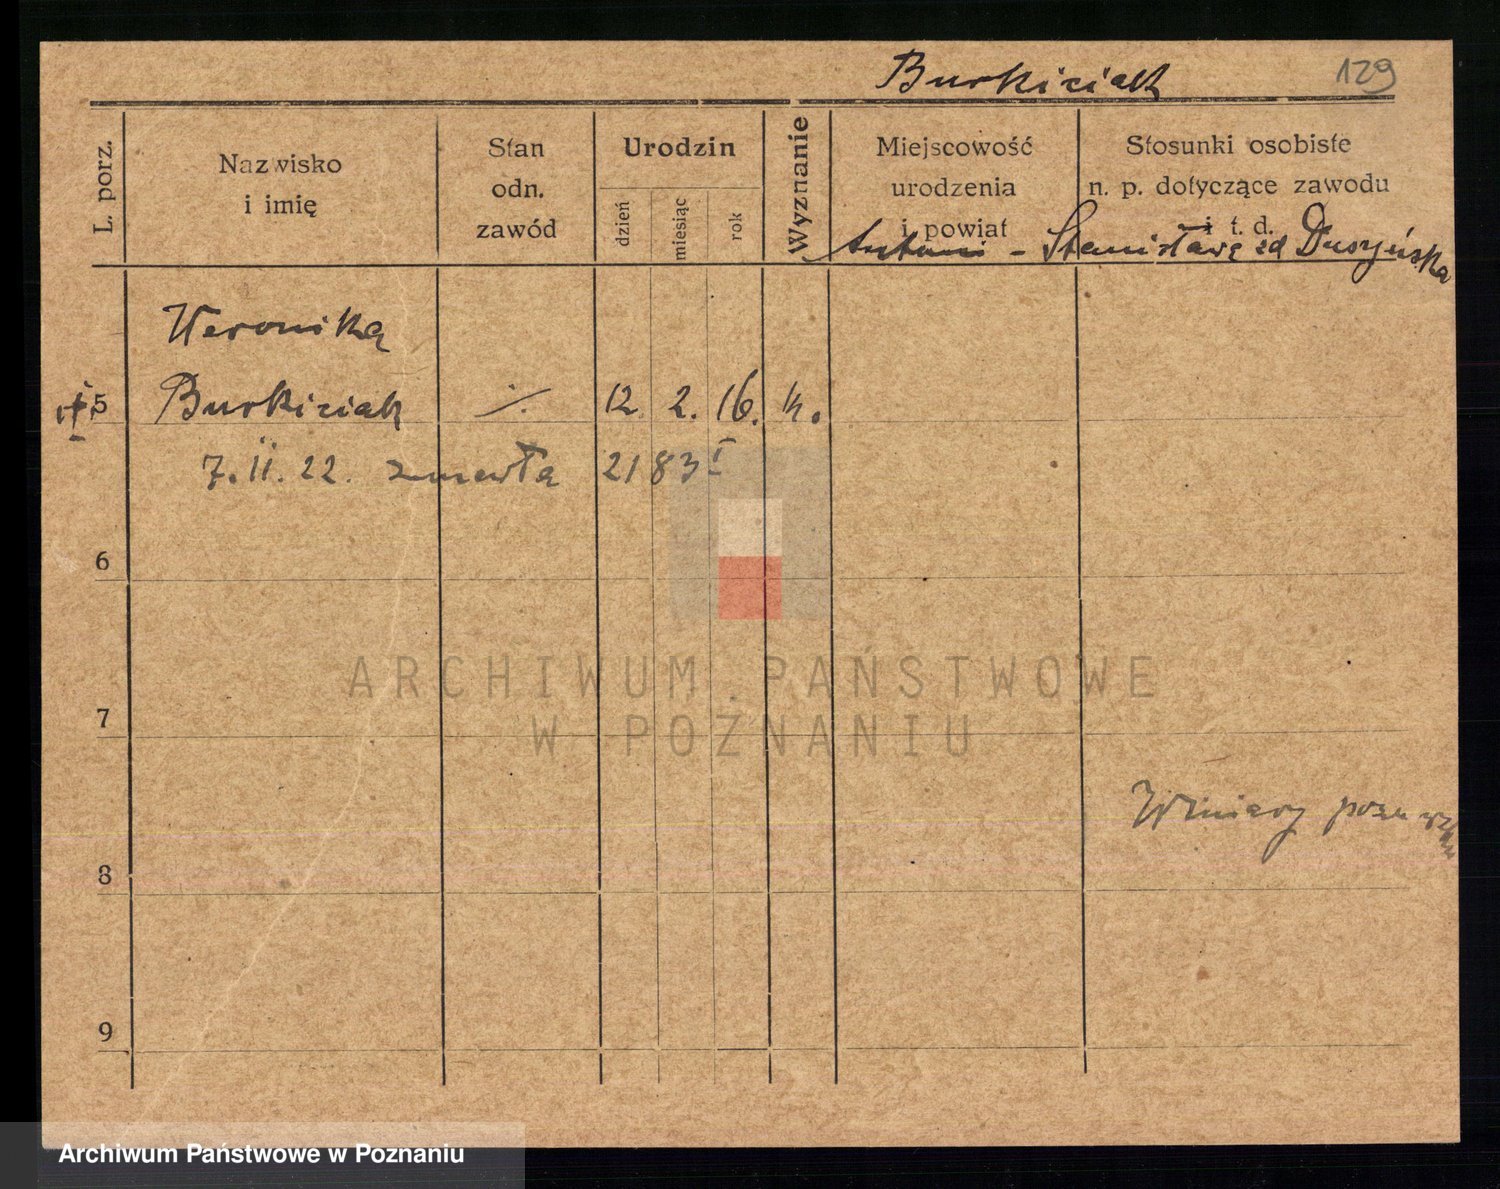 Burkiciak 129
L. porz.
Nazwisko
i imię
Stan
odn.
zawód
Urodzin
dzień
miesiąc
rok
Wyznanie
Miejscowość
urodzenia
i powiat
Stosunki osobiste
n. p. dotyczące zawodu
i t. d.
Antoni - Stanisława zd Duszyńska
Weronika
5 Burkiciak ./. 12. 2. 16. k.
7.II.22. zmarła 2183 I
6
ARCHIWUM PAŃSTWOWE
W POZNANIU
7
Winiary
8
9
Archiwum Państwowe w Poznaniu